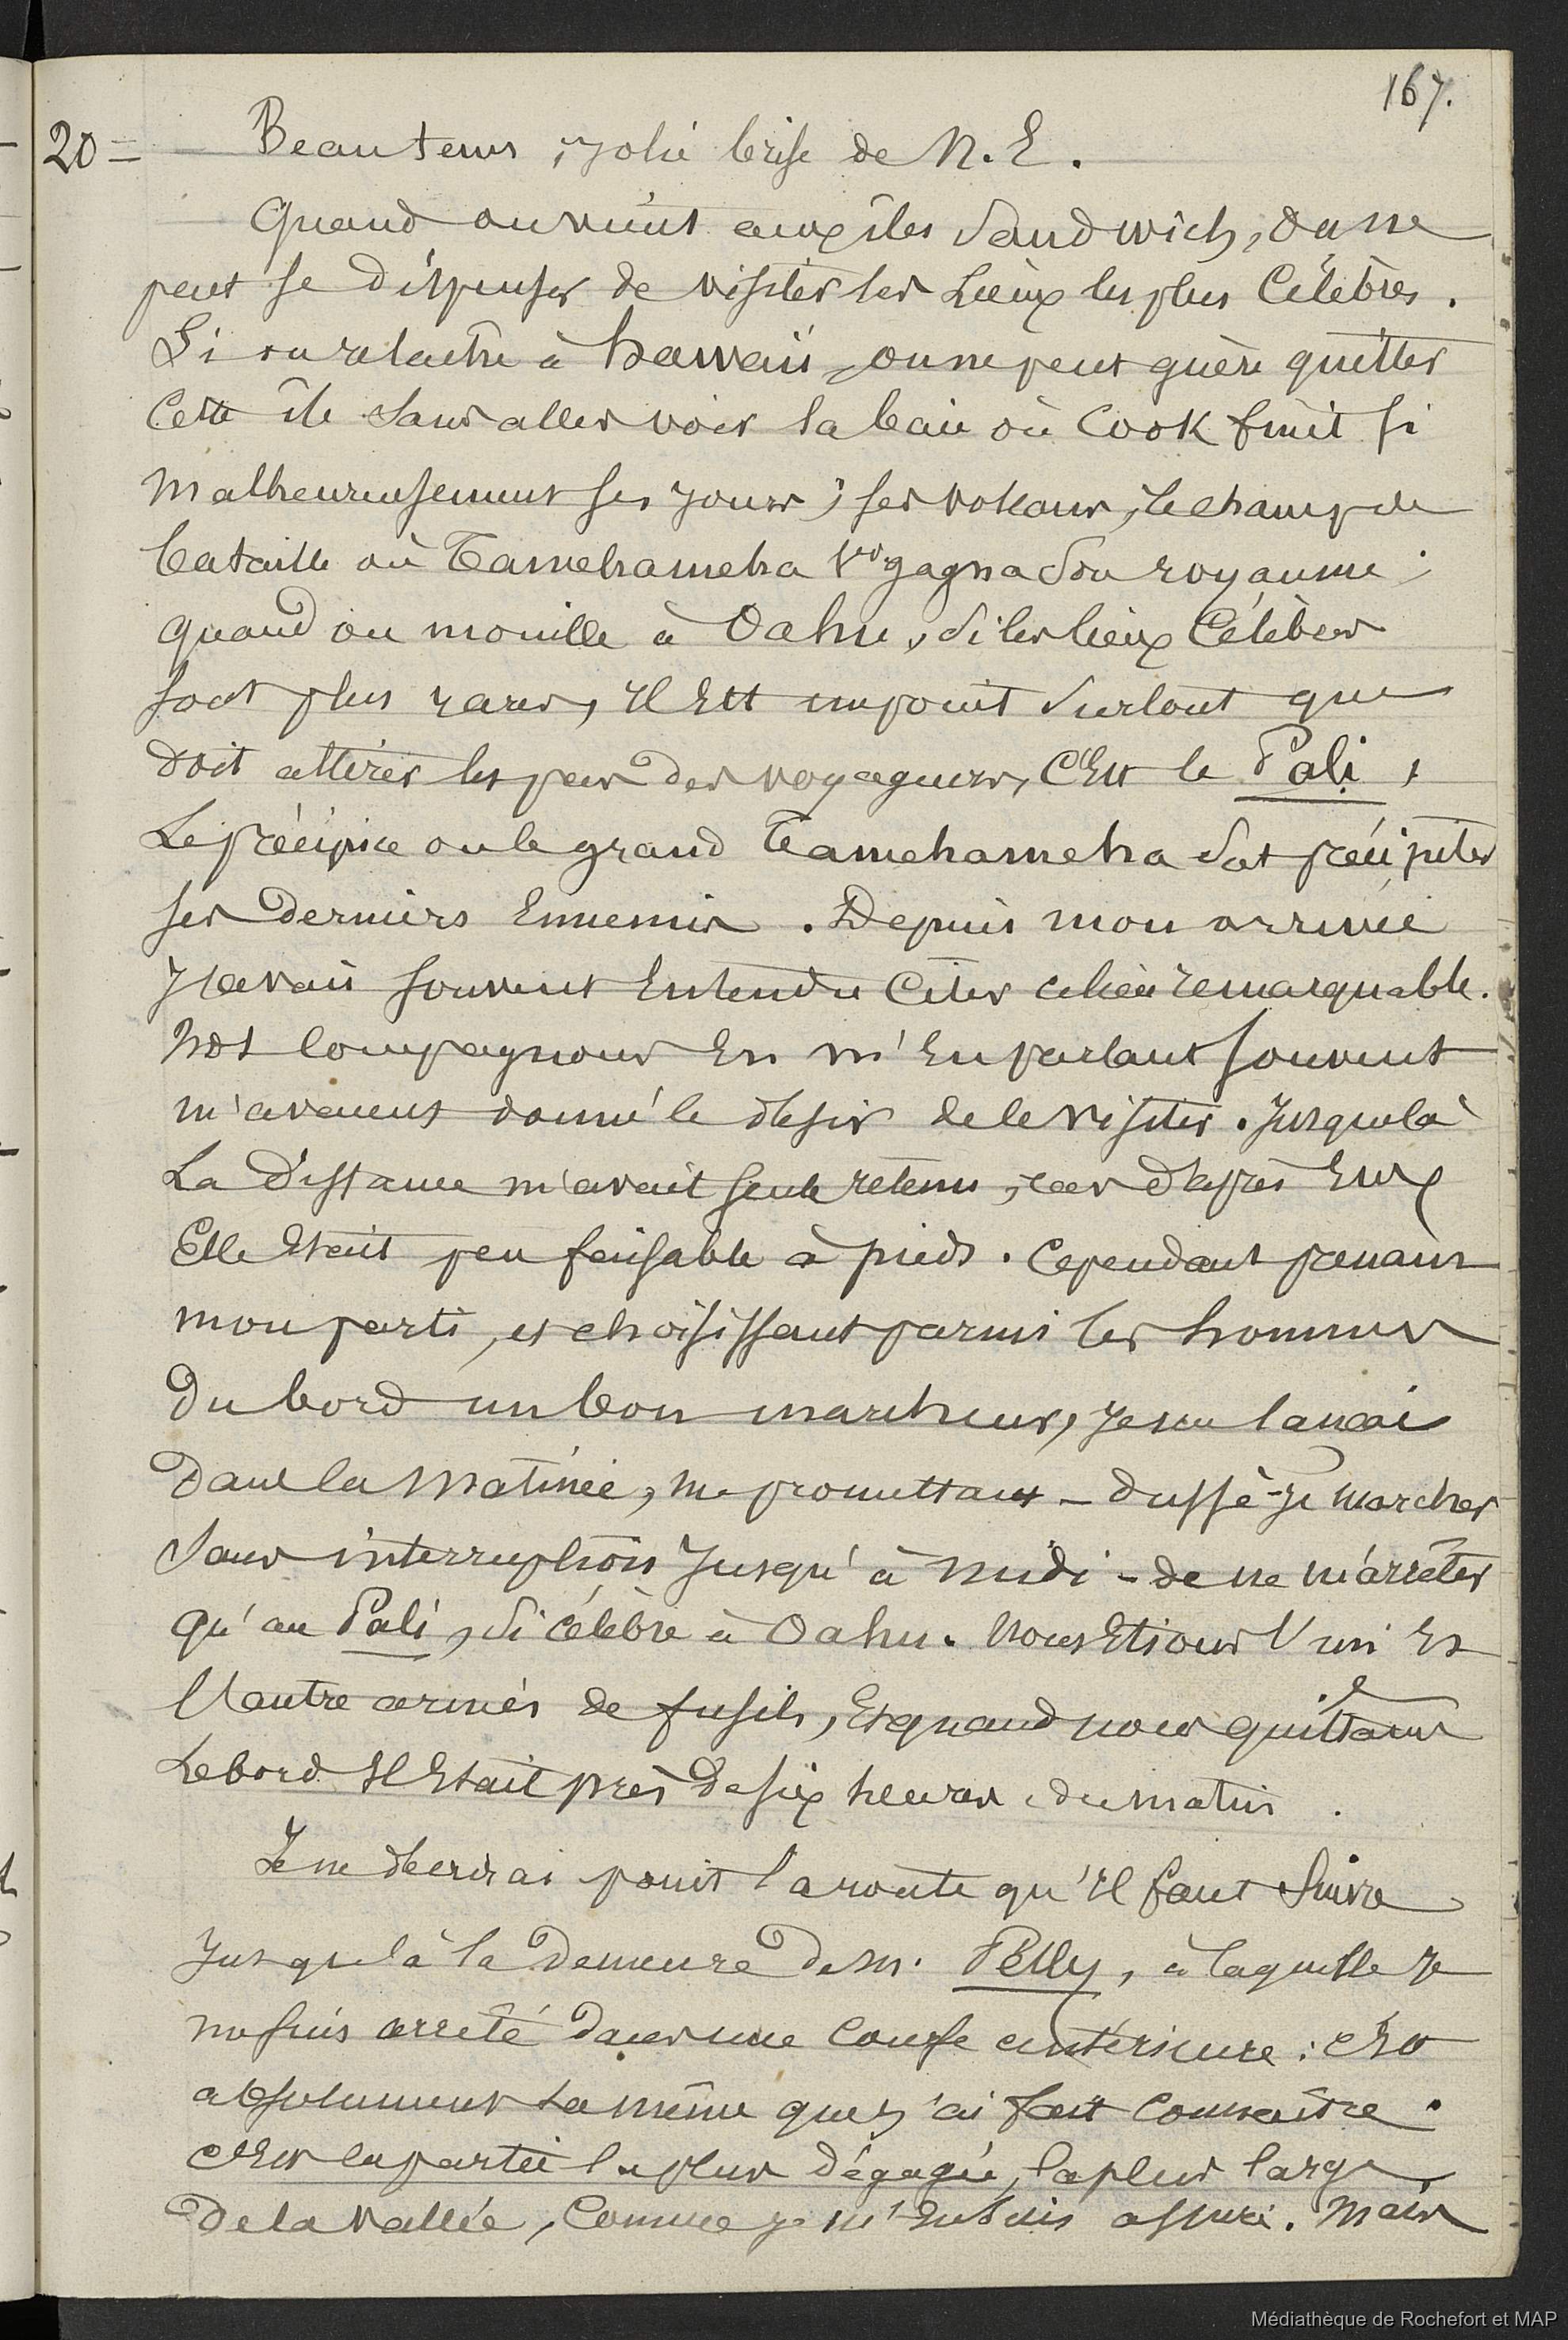 167.
20 = Beau tems, jolie brise de N. E.
Quand on vient aux îles Sandwich, on ne
peut se dispenser de visiter les Lieux les plus Célèbres.
Si on relache à hawaii, on ne peut guère quitter
Cette île sans aller voir la baie où Cook finit si
malheureusement ses jours ; ses volcans, le champ de
bataille où Tamehameha 1er gagna son royaume ;
quand on mouille à Oahu, si les lieux Célèbres
sont plus rares, il Est un point surtout que
doit attirer les pas des voyageurs, C'Est le Pali,
Le précipice ou le grand Tamehameha sat précipiter
ses derniers Ennemis. Depuis mon arrivée
J'avais souvent Entendu Citer ce lieu remarquable.
Nos Compagnons En m'En parlant souvent
m'avaient donné le désir de le visiter. Jusque là
La distance m'avait seule retenu, car d'après Eux
Elle Etait peu faisable à pieds. Cependant prenant
mon parti, et choisissant parmi les hommes
Du bord un bon marcheur, je me lançai
Dans la matinée, me promettant - dussè-je marcher
sans interruption jusqu'à midi - de ne m'arrêter
qu'au Pali, si célèbre à Oahu. Nous Etions l'un Et
l'autre armés de fusils, Et quand nous quittâmes
Le bord il Etait près de six heures du matin.
Je ne décrirai point la route qu'il faut suivre
jusque là la Demeure de M. Pelly, à laquelle je
me suis arrêté dans une Course antérieure : c'Est
absolument La même que j'ai fait Connaître.
c'Est la partie la plus dégagée, la plus large
De la vallée, Comme je m'En suis assuré. Mais
Médiathèque de Rochefort et MAP